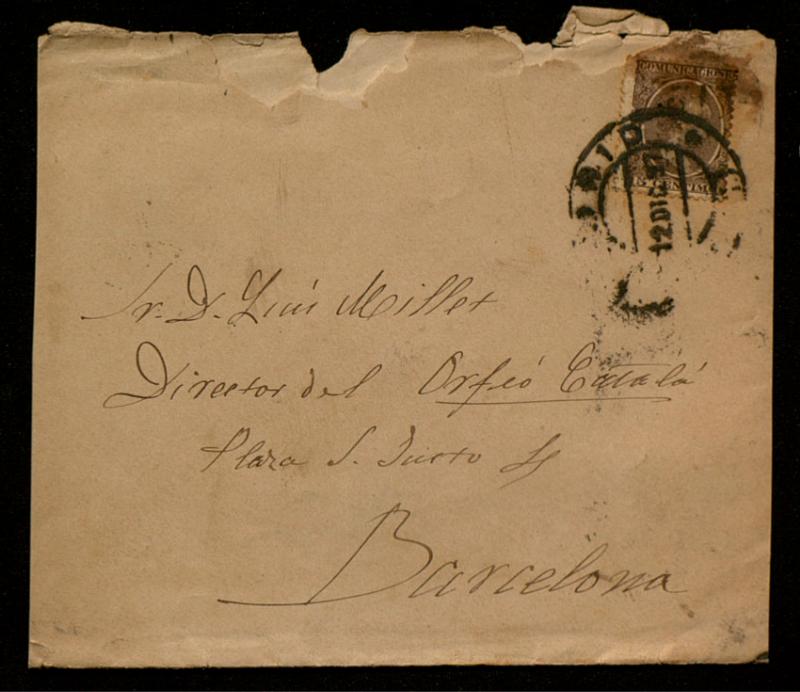 COMUNICACIONES
15 CENTIMOS
DRID
12 DIC 97
Sr. D. Lluís Millet
Director del Orfeó Catalá
Plaza S. Justo 4
Barcelona